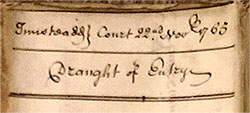 Court 22nd Nov 1765
Draught of Entry